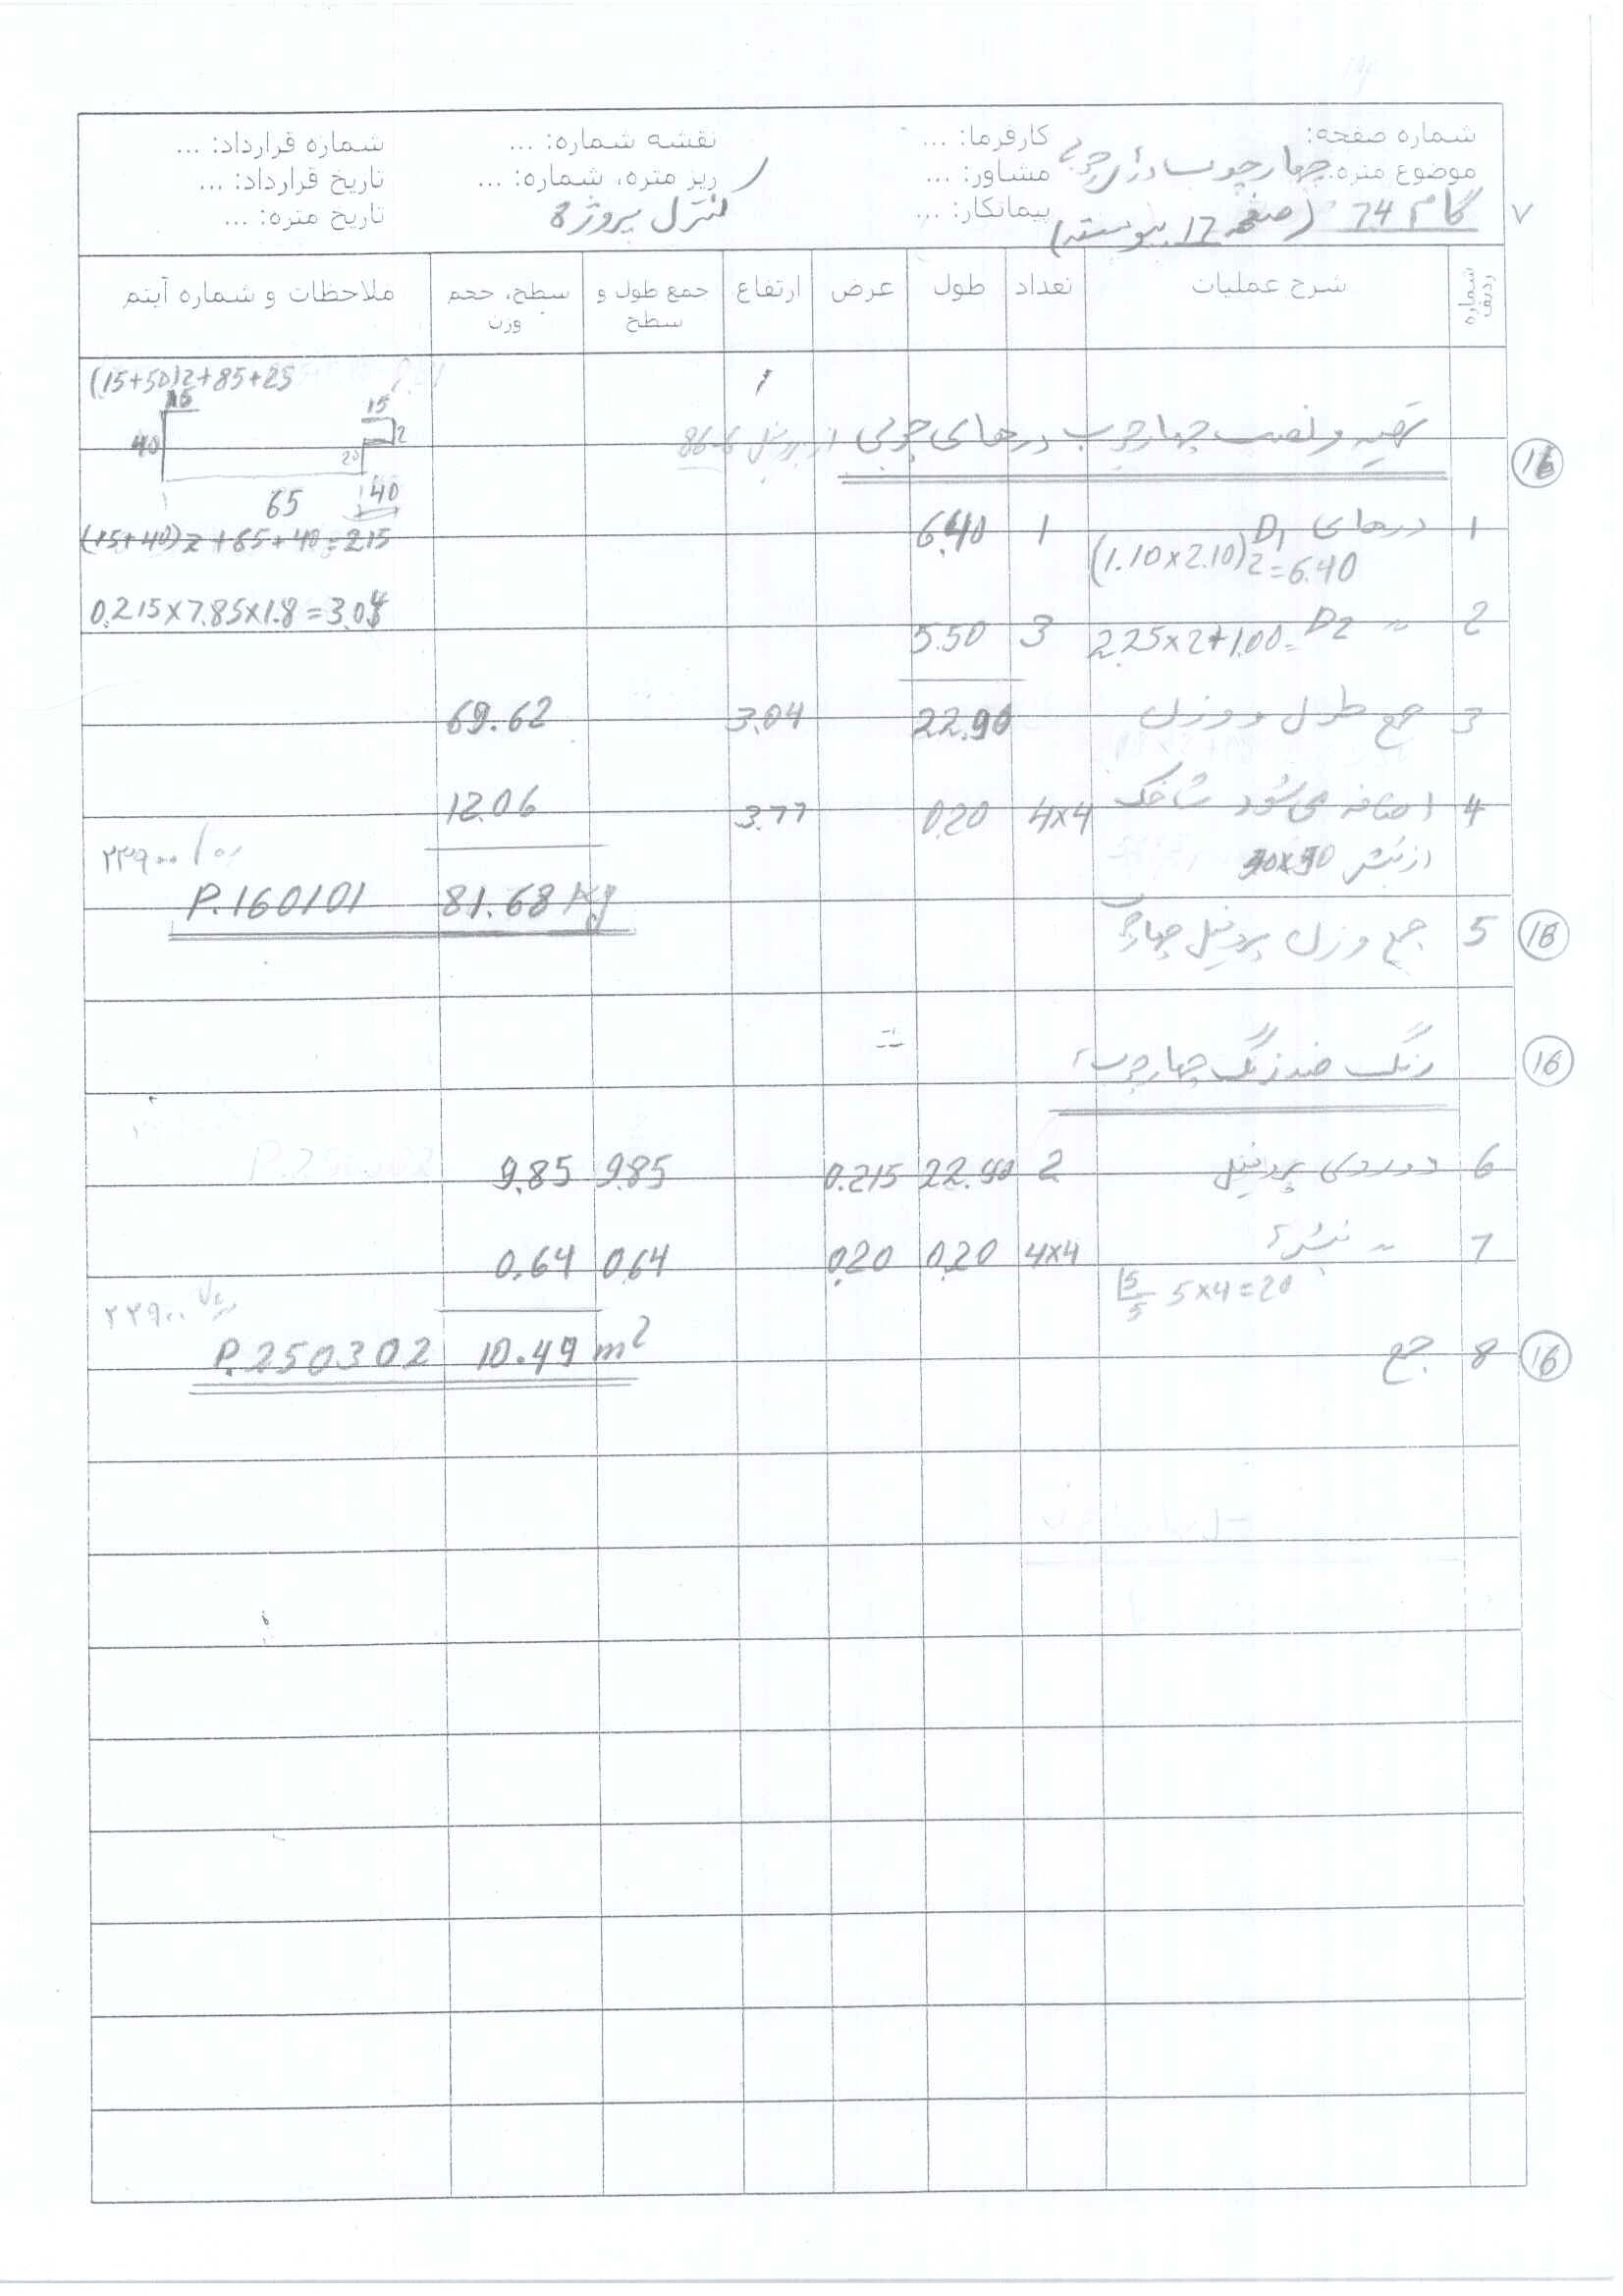 شماره صفحه:
موضوع متره: چهارچوب درهای چوبی
گام 74 (صفحه 17 پیوسته)
کارفرما: ...
مشاور: ...
پیمانکار: ...
نقشه شماره: ...
ریز متره، شماره: ...
کنترل پروژه 8
شماره قرارداد: ...
تاریخ قرارداد: ...
تاریخ متره: ...
٧
شماره ردیف شرح عملیات تعداد طول عرض ارتفاع جمع طول و سطح سطح، حجم وزن ملاحظات و شماره آیتم
(15+50)2+85+25
15 15
40 2
20
65 40
16 تهیه و نصب چهارچوب درهای چوبی از پروفیل 6-86
1 درهای D1 1 6.40 (15+40)2+65+40=215
(1.10x2.10)2=6.40
2 〃 D2 2.25x2+1.00= 3 5.50 0.215x7.85x1.8=3.04
3 جمع طول و وزن 22.90 3.04 69.62
4 اضافه می‌شود شاخک 4x4 0.20 3.77 12.06
از نبشی 50x50
5 جمع وزن پروفیل چهارچوب 81.68 Kg P.160101
16 رنگ ضد زنگ چهارچوب
6 دو روی پروفیل 2 22.90 0.215 9.85 9.85
7 〃 نبشی 4x4 0.20 0.20 0.64 0.64
5 5 5x4=20
16 8 جمع 10.49 m2 P.250302